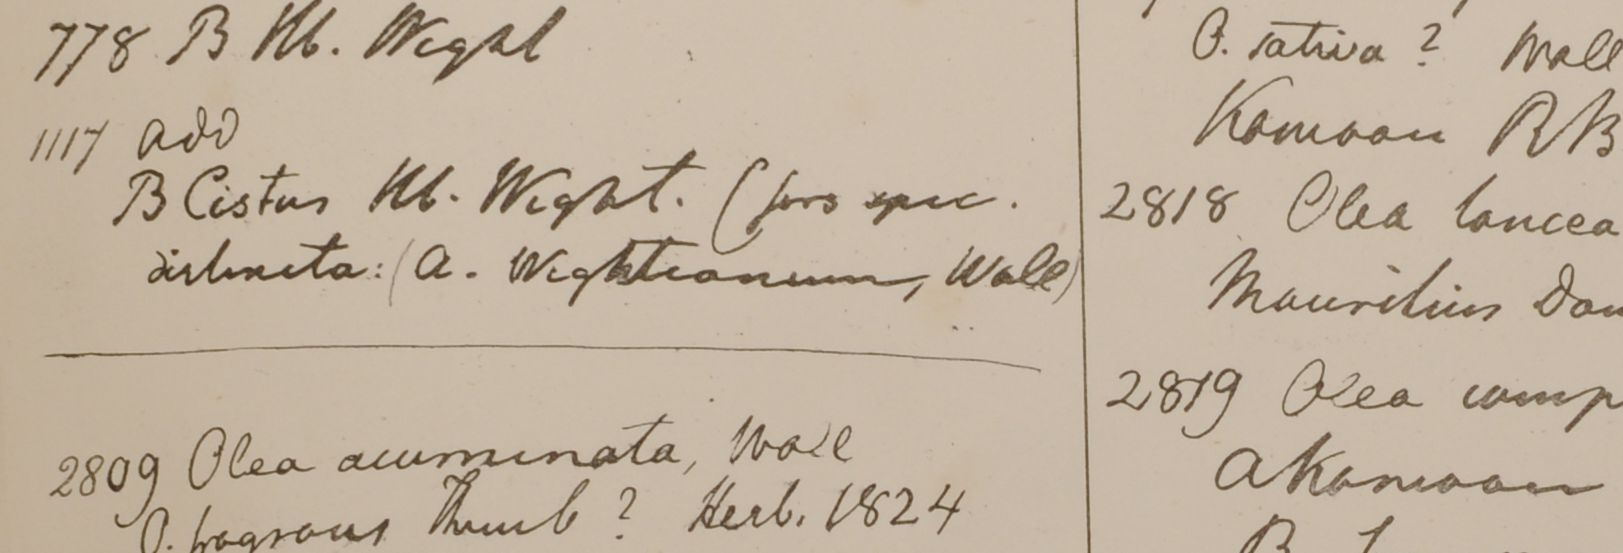 778 B Hb. Wight
1117 add
B Cistus Hb. Wight. (pro spec.
distincta: (A. Wightianum, Wall)
2809 Olea acuminata, Wall
O. fragrans Thunb? Herb. 1824
O. sativa? Wall
Kamoon RB
2818 Olea lancea
Mauritius Dom
2819 Olea comp
A Kamoon
B